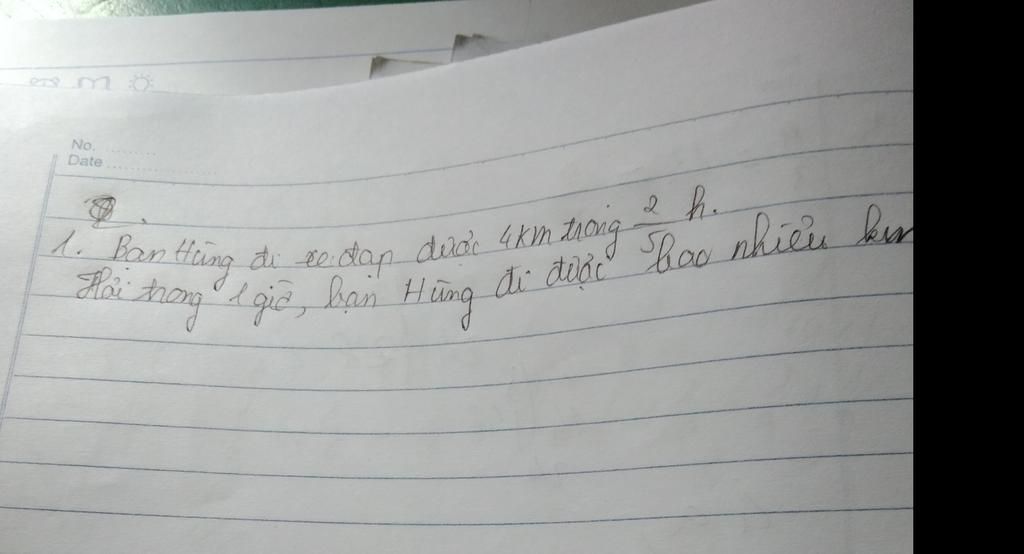 No. ........
Date ..................
1. Bạn Hùng đi xe đạp được 4km trong 2/5 h.
Hỏi trong 1 giờ, bạn Hùng đi được bao nhiêu km